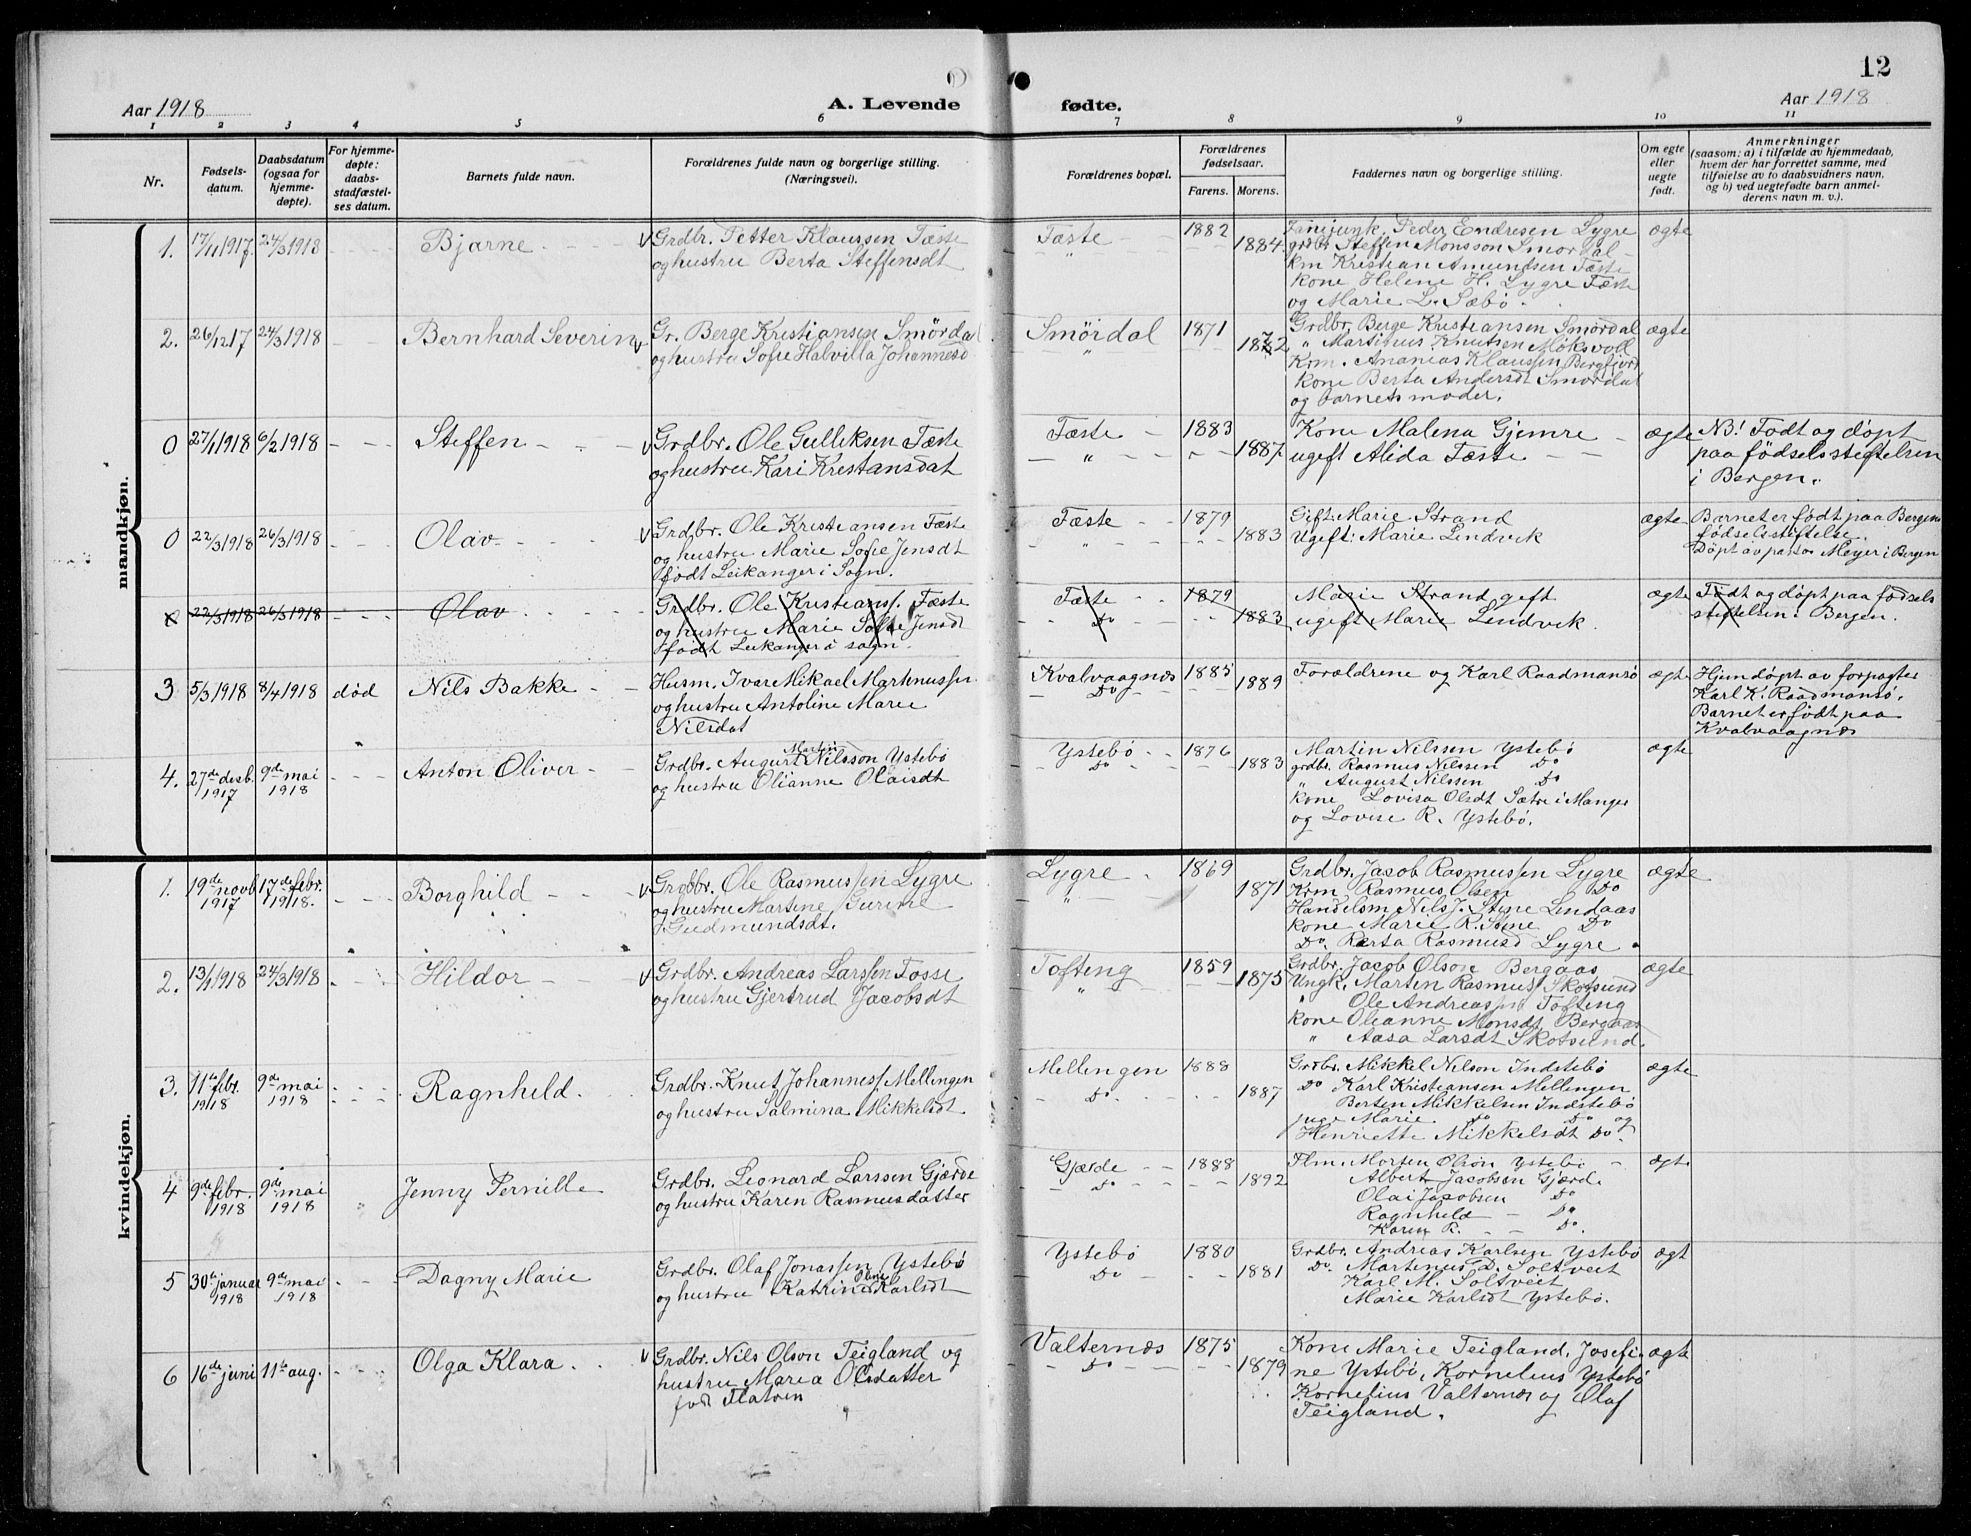 12
Aar 1918
A. Levende fødte.
Aar 1918
1 2 3 4 5 6 7 8 9 10 11
Nr.
Fødsels-
datum.
Daabsdatum
(ogsaa for
hjemme-
døpte).
For hjemme-
døpte:
daabs-
stadfæstel-
ses datum.
Barnets fulde navn.
Forældrenes fulde navn og borgerlige stilling.
(Næringsvei).
Forældrenes bopæl.
Forældrenes
fødselsaar.
Farens. Morens.
Faddernes navn og borgerlige stilling.
Om egte
eller
uegte
født.
Anmerkninger
(saasom: a) i tilfælde av hjemmedaab,
hvem der har forrettet samme, med
tilføielse av to daabsvidners navn,
og b) ved uegtefødte barn anmel-
derens navn m. v.).
mandkjøn.
1. 17/11 1917 24/3 1918 Bjarne
Grdbr. Petter Klaussen Fæste
og hustru Berta Steffensdt
Fæste 1882 1884
Peder Endresen Lygre
grdbr Steffen Monsson Smordal
km Kristian Amundsen Fæste
kone Helene H. Lygre Fæste
og Marie L. Sæbø.
ægte
2. 26/12 17 24/3 1918 Bernhard Severin
Gr. Berge Kristiansen Smördal
og hustru Sofie Halvilla Johannesd
Smördal 1871 1872
Grdbr. Berge Kristiansen Smørdal
" Martinus Knutsen Möksvoll
Krm. Ananias Klaussen Bergfjord
kone Berta Andersdt Smørdal
og barnets moder.
ægte
0 27/1 1918 6/2 1918 Steffen
Grdbr. Ole Gulliksen Fæste
og hustru Kari Krestansdat
Fæste 1883 1887
Kone Malena Gjemre
ugeft Alida Fæste
ægte
NB! Født og døpt
paa fødselsstiftelsen
i Bergen.
0 22/3 1918 26/3 1918 Olav
Grdbr. Ole Kristiansen Fæste
og hustru Marie Sofie Jensdt
født Leikanger i Sogn.
Fæste 1879 1883
Gift: Marie Strand
Ugeft: Marie Lindvik
ægte
Barnet er født paa Bergens
fødselsstiftelse.
Døpt av pastor Meyer i Bergen
0 22/3 1918 26/3 1918 Olav
Grdbr. Ole Kristianss. Fæste
og hustru Marie Sofie Jensdt
født Leikanger i sogn.
Fæste Do 1879 1883
Marie Strand gift
ugeft Marie Lindvik.
ægte
Født og døpt paa fødsels
stiftelsen i Bergen.
3 5/3 1918 8/4 1918 död Nils Bakke
Husm. Ivar Mikael Martinussen
og hustru Antoline Marie
Nilsdat
Kvalvaagnes Do 1885 1889
Forældrene og Karl Raadmansø
ægte
Hjemdøpt av forpagter
Karl K. Raadmansø.
Barnet er født paa
Kvalvaagnæs
4. 27de desb. 1917 9de mai 1918 Anton Oliver
Grdbr. August Martin Nilsson Ystebø
og hustru Olianne Olaisdt
Ystebø Do 1876 1883
Martin Nilssen Ystebø
grdbr. Rasmus Nilssen Do
" August Nilssen Do
kone Lovisa Olsdt Sætre i Manger
og Lovise R. Ystebø.
ægte
kvindekjøn.
1. 19de novb 1917 17de febr. 1918. Borghild
Grdbr. Ole Rasmussen Lygre
og hustru Martine Gurine
Gudmundsdt.
Lygre 1869 1871
Grdbr. Jacob Rasmussen Lygre
Krm Rasmus Olsen Do
Handelsm Nils J. Stine Lindaas
kone Marie R. Stine Do
Do. Berta Rasmusd Lygre
ægte
2. 13/1 1918 24/3 1918 Hildor
Grdbr. Andreas Larssen Fosse
og hustru Gjertrud Jacobsdt
Tofting 1859 1875
Grdbr. Jacob Olson Bergaas
Ungk. Martin Rasmuss Skotsund
Ole Andreassen Tofting
kone Olianne Monsdt Bergaas
" Aasa Larsdt Skotsund.
ægte
3. 11te febr. 1918 9de mai 1918 Ragnhild
Grdbr. Knut Johanness. Mellingen
og hustru Salmina Mikkelsdt
Mellingen Do 1888 1887
Grdbr Mikkel Nilson Indstebø
Do Karl Kristiansen Mellingen
Berten Mikkelsen Indstebø
pige Marie Do Do og
Henriette Mikkelsdt Do.
ægte
4 9de febr. 1918 9de mai 1918 Jenny Pernille
Grdbr. Leonard Larssen Gjærde
og hustru Karen Rasmusdatter
Gjærde Do 1888 1892
Morten Olson Ystebø
Albert Jacobsen Gjærd.
Olai Jacobsen Do
Ragnhild Do
Karen R. Do
ægt
5 30te januar 1918 9de mai 1918 Dagny Marie
Grdbr. Olaf Jonassen Ystebø
og hustru Katrine Karlsdt
Ystebø Do 1880 1881
Grdbr. Andreas Karlsen Ystebø
Do. Martinus D. Soltveit
Karl M. Soltveit
Marie Karlsdt Ystebø.
ægt
6 16de juni 11te aug. Olga Klara
Grdbr. Nils Olson Teigland og
hustru Maria Olsdatter
født Flaten
Valternæs Do 1875 1879
Kone Marie Teigland, Josefi-
ne Ystebø, Kornelius Ystebø
Kornelius Valternæs og Olaf
Teigland.
ægte